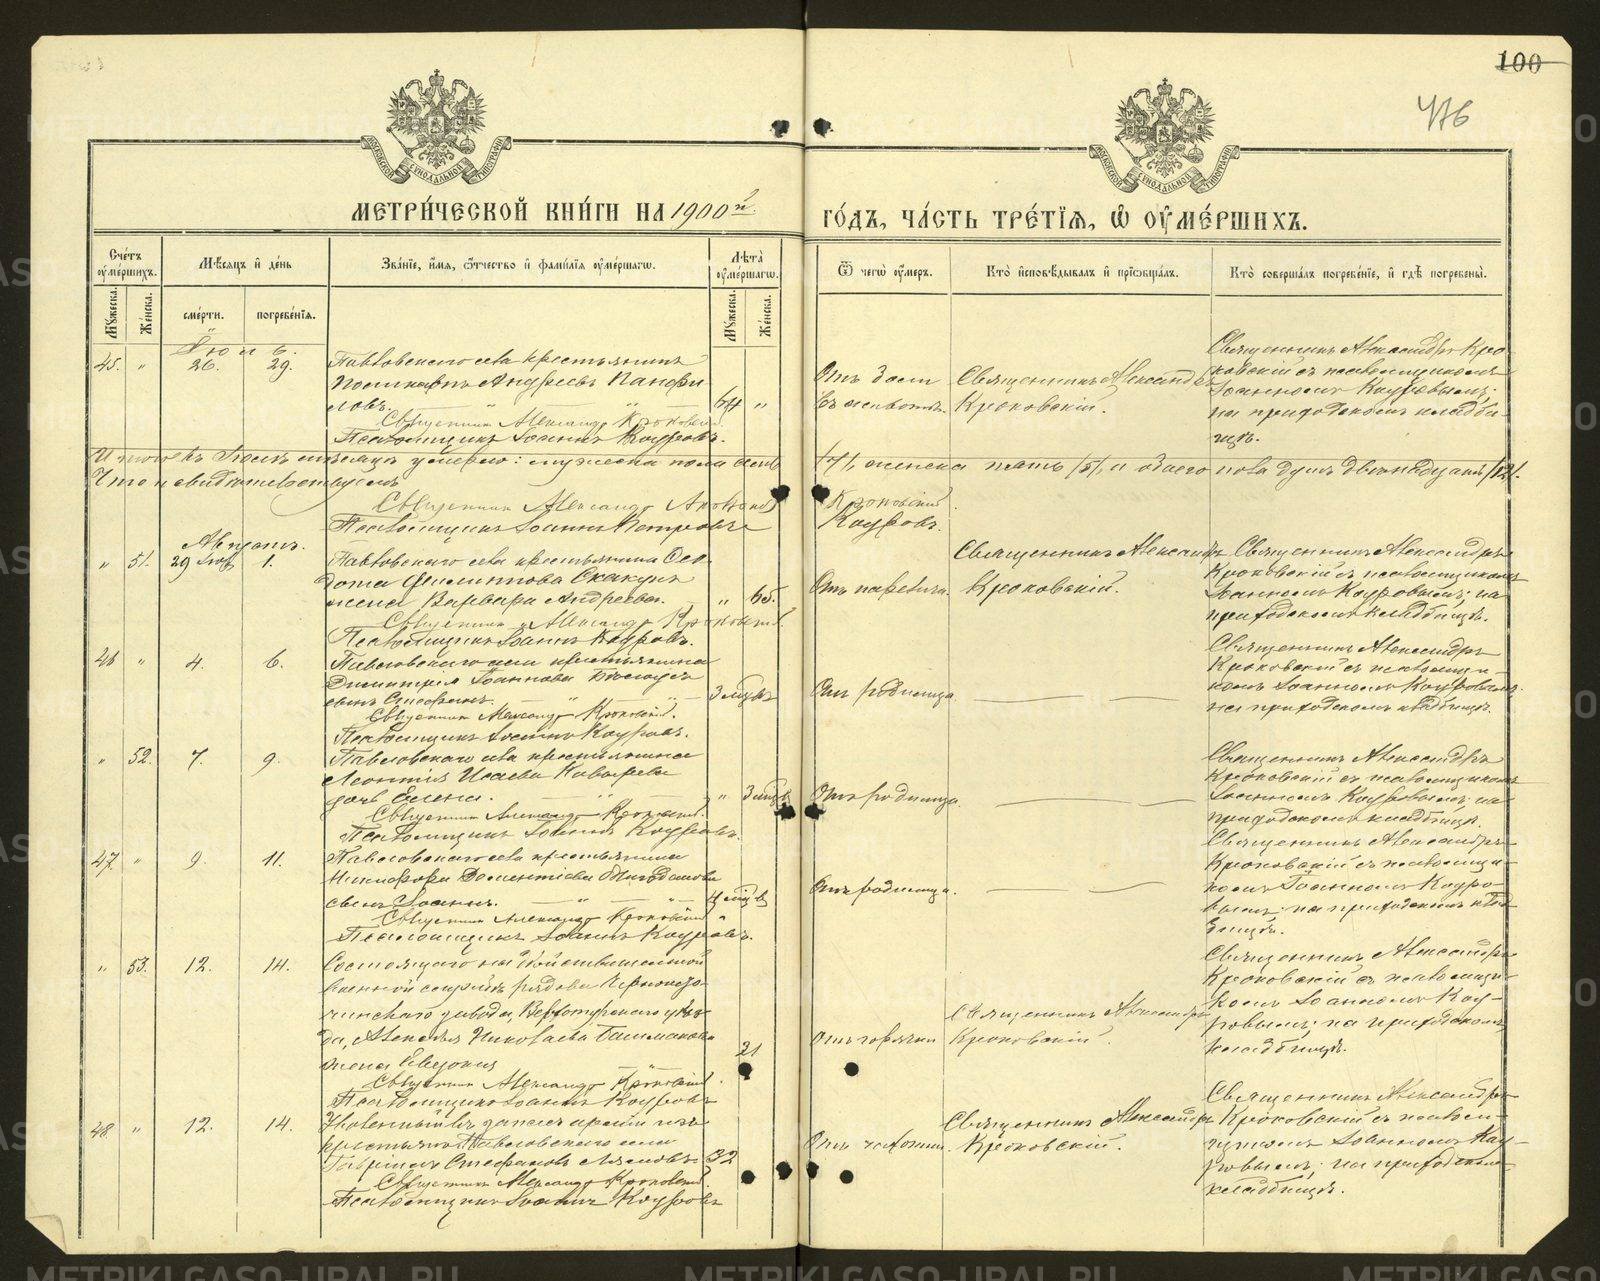 100
476
МОСКОВСКОЙ СѴНОДАЛЬНОЙ ТИПОГРАФІИ
МОСКОВСКОЙ СѴНОДАЛЬНОЙ ТИПОГРАФІИ
МЕТРИ́ЧЕСКОЙ КНИ́ГИ НА 1900й
ГО́ДЪ, ЧА́СТЬ ТРЕ́ТІѦ, Ѡ҆ ОУ҆МЕ́РШИХЪ.
Сче́тъ оу҆ме́ршихъ.
Мѣ́сяцъ и҆ де́нь
Зва́нїе, и҆́мѧ, ѻ҆́тчество и҆ фами́лїѧ оу҆ме́ршагѡ.
Лѣ́та оу҆ме́ршагѡ.
Ѿ чегѡ̀ оу҆́меръ.
Кто̀ и҆сповѣ́дывалъ и҆ прїѡбща́лъ.
Кто̀ соверша́лъ погребе́нїе, и҆ гдѣ̀ погребены̀.
Мꙋ́жеска.
Же́нска.
сме́рти.
погребе́нїѧ.
Мꙋ́жеска.
Же́нска.
Іюль.
45. " 26. 29. Павловскаго села крестьянинъ
Поликарпъ Андреевъ Панфи
ловъ. 64 "
Священникъ Александръ Крюковскій.
Псаломщикъ Іоаннъ Кауровъ.
Священникъ Александръ
Крюковскій.
Священникъ Александръ Крю-
ковскій съ псаломщикомъ
Іоанномъ Кауровымъ;
на приходскомъ кладби-
щѣ.
Итого въ Іюлѣ мѣсяцѣ умерло: мужеска пола семь /7/, женска пять /5/, а обоего пола душъ двѣнадцать /12/.
Что и свидѣтельствуемъ
Священникъ Александръ Крюковскій
Псаломщикъ Іоаннъ Кауровъ.
Августъ.
" 51. 29 Іюл. 1. Павловскаго села крестьянина
Филиппова
жена Варвара Андреева. " 65.
Священникъ Александръ Крюковскій.
Псаломщикъ Іоаннъ Кауровъ.
Священникъ Александръ
Крюковскій.
Священникъ Александръ
Крюковскій съ псаломщикомъ
Іоанномъ Кауровымъ; на
приходскомъ кладбищѣ.
46 " 4. 6. Павловскаго села крестьянина
Димитрія Іоаннова
сынъ Стефанъ. 3 мцвъ
Священникъ Александръ Крюковскій.
Псаломщикъ Іоаннъ Кауровъ.
Отъ родимца
Священникъ Александръ
Крюковскій съ псаломщи
комъ Іоанномъ Кауровымъ
на приходскомъ кладбищѣ.
" 52. 7. 9. Павловскаго села крестьянина
Леонтія Исаева
дочь Елена. " 3 мцвъ
Священникъ Александръ Крюковскій.
Псаломщикъ Іоаннъ Кауровъ.
Отъ родимца.
Священникъ Александръ
Крюковскій съ псаломщикомъ
Іоанномъ Кауровымъ на
приходскомъ кладбищѣ.
47. " 9. 11. Павловскаго села крестьянина
Никифора
сынъ Іоаннъ.
Священникъ Александръ Крюковскій
Псаломщикъ Іоаннъ Кауровъ.
Отъ родимца.
Священникъ Александръ
Крюковскій съ псаломщи-
комъ Іоанномъ Кауро-
вымъ; на приходскомъ клад
бищѣ.
" 53. 12. 14. Состоящаго на дѣйствительной
военной службѣ рядового Черноисто
чинскаго завода, Верхотурскаго уѣз-
да, Николаева Башмакова
жена Евдокія 21
Священникъ Александръ Крюковскій.
Псаломщикъ Іоаннъ Кауровъ
Отъ горячки
Священникъ Александръ
Крюковскій.
Священникъ Александръ
Крюковскій съ псаломщи-
комъ Іоанномъ Кау-
ровымъ; на приходскомъ
кладбищѣ.
48. " 12. 14. Уволенный въ запасъ арміи изъ
крестьянъ Павловскаго села
Гавріилъ Стефановъ 32
Священникъ Александръ Крюковскій.
Псаломщикъ Іоаннъ Кауровъ
Отъ чахотки.
Священникъ Александръ
Крюковскій.
Священникъ Александръ
Крюковскій съ псалом-
щикомъ Іоанномъ Кау-
ровымъ; на приходскомъ
кладбищѣ.
METRIKI.GASO-URAL.RU